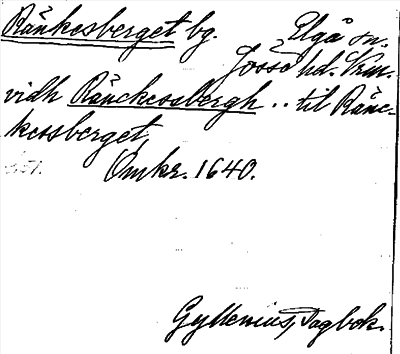 Ränkesberget bg. Elgå sn.
Jösse hd. Vrm.
vidh Ränckessbergh .. til Ränc-
kessberget
Omkr. 1640.
Gyllenius, Dagbok.